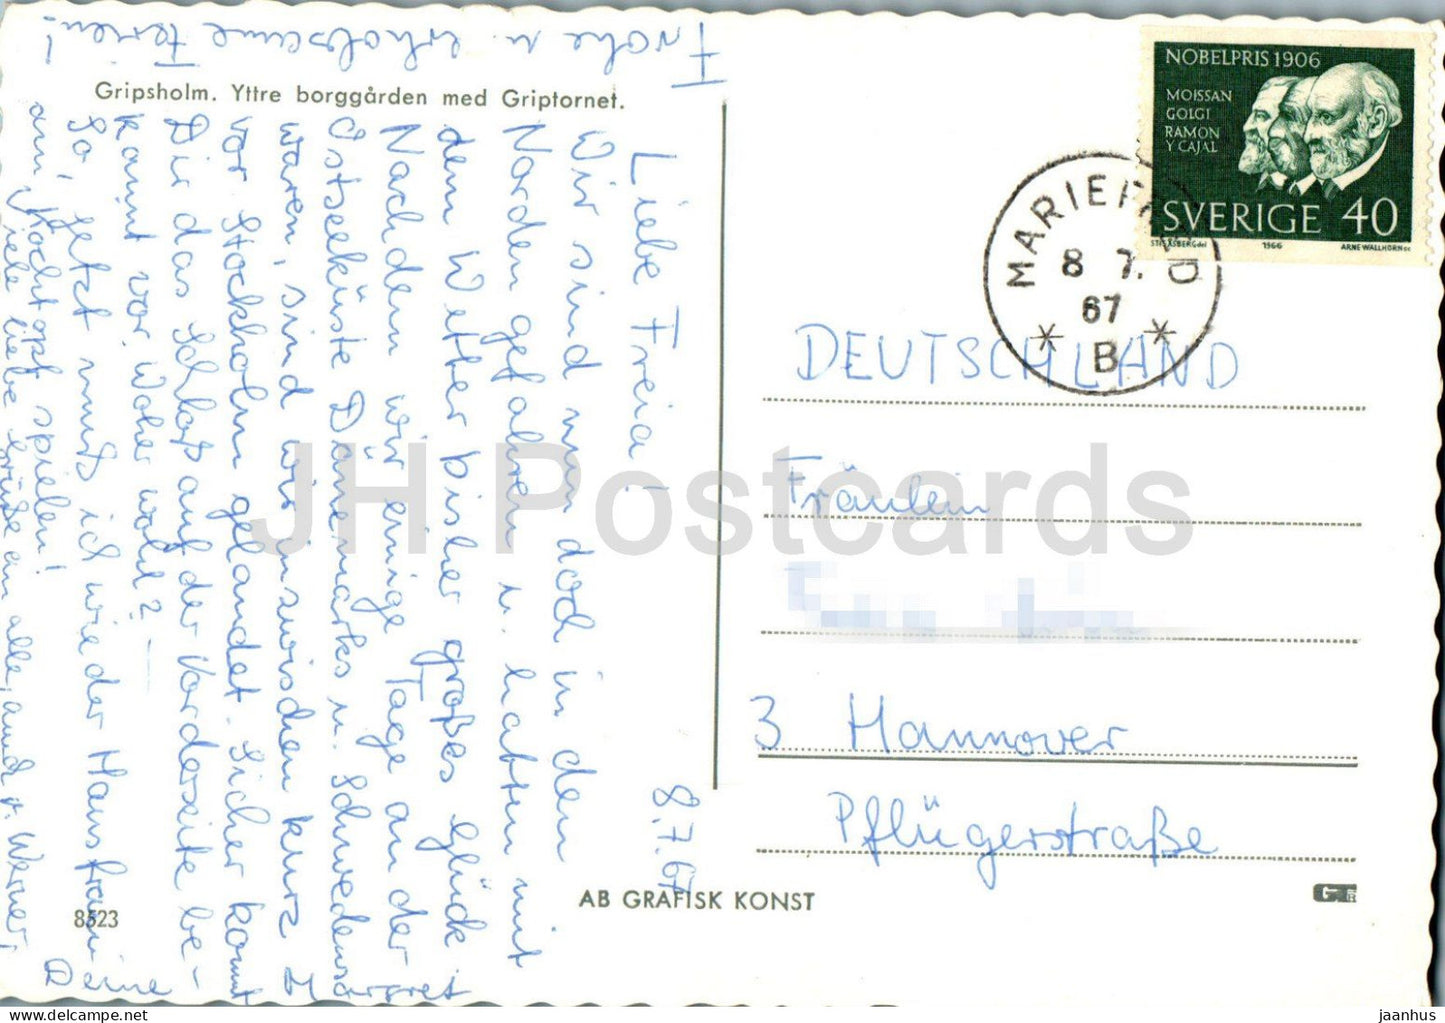 Gripsholm. Yttre borggården med Griptornet.
8.7.67
Liebe Freia!
Wir sind nun doch in den
Norden gefahren u. hatten mit
dem Wetter bisher großes Glück.
Nachdem wir einige Tage an der
Ostseeküste Dänemarks u. Schwedens
waren, sind wir inzwischen kurz
vor Stockholm gelandet. Sicher kommt
Dir das Schloß auf der Vorderseite be-
kannt vor. Woher wohl? —
So, jetzt muß ich wieder Hausfrau
am Kochtopf spielen!
Viele liebe Grüße an alle, auch v. Werner,
Deine
Margret
Frohe u. erholsame Ferien!
NOBELPRIS 1906
MOISSAN
GOLGI
RAMON
Y CAJAL
SVERIGE 40
STIG ÅSBERG del 1966 ARNE WALLHORN sc
MARIEFRED
8 7.
67
* B *
DEUTSCHLAND
Fräulein
3 Hannover
Pflügerstraße
AB GRAFISK KONST
8523
JH Postcards
jaanhus